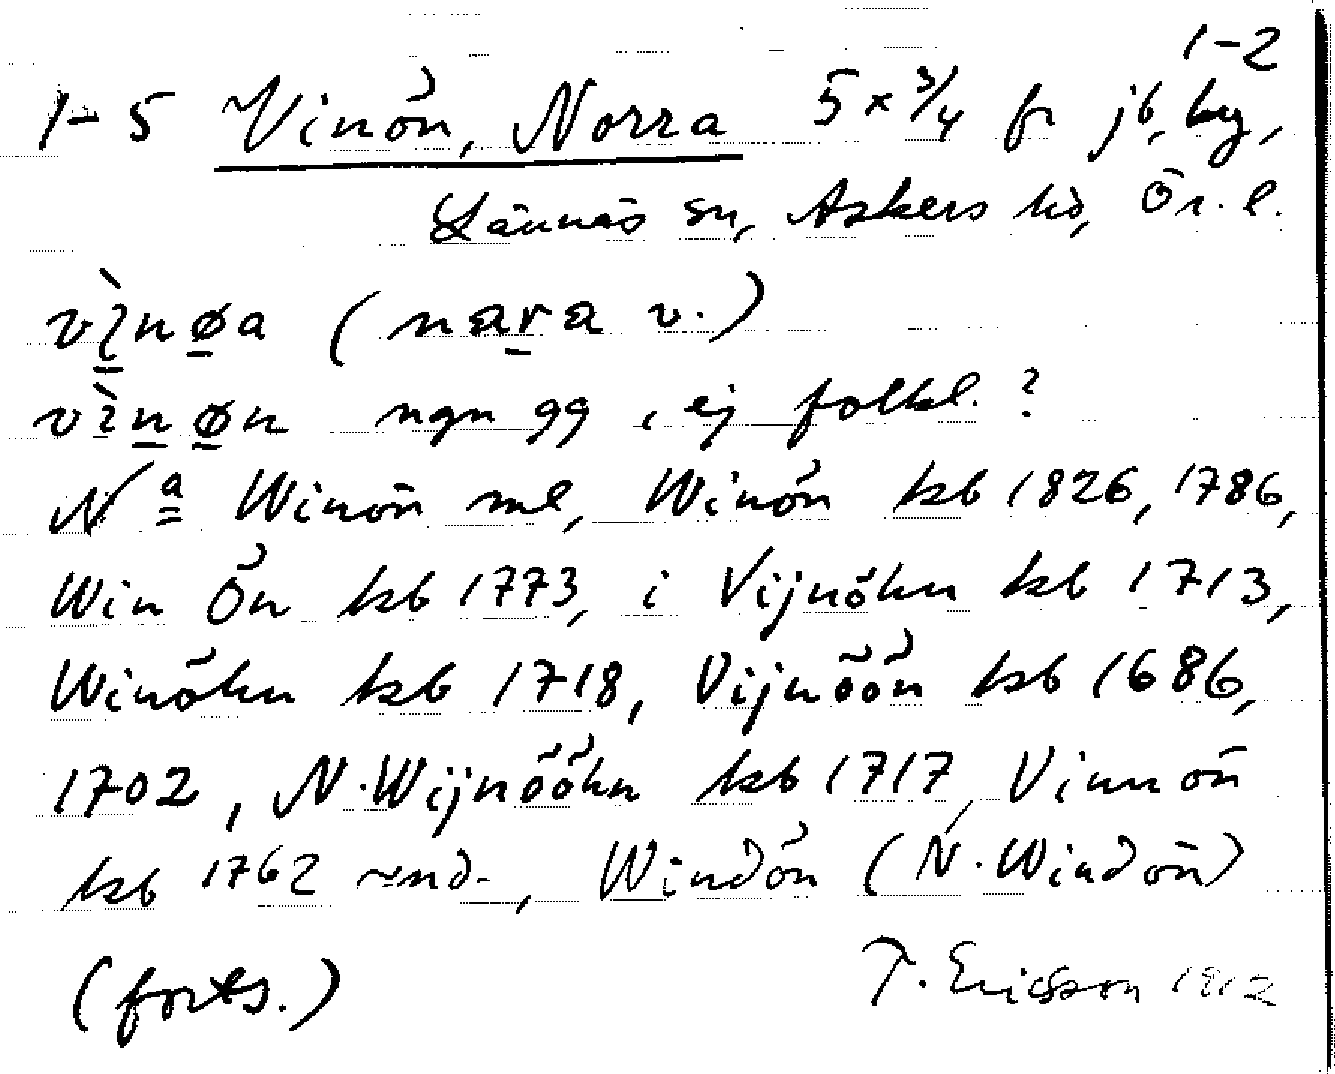 1-2
1-5 Vinön, Norra 5 x 3/4 fr jb, by,
Lännäs sn, Askers hd, Ör. l.
vìnøa (nara v.)
vìnøn ngn gg, ej folkl.?
Nª Winön ml, Winön kb 1826, 1786,
Win Ön kb 1773, i Vijnöhn kb 1713,
Winöhn kb 1718, Vijnöön kb 1686,
1702, N. Wijnööhn kb 1717, Vinnön
kb 1762 Windön (N. Windön)
(forts.) T. Ericsson 1912